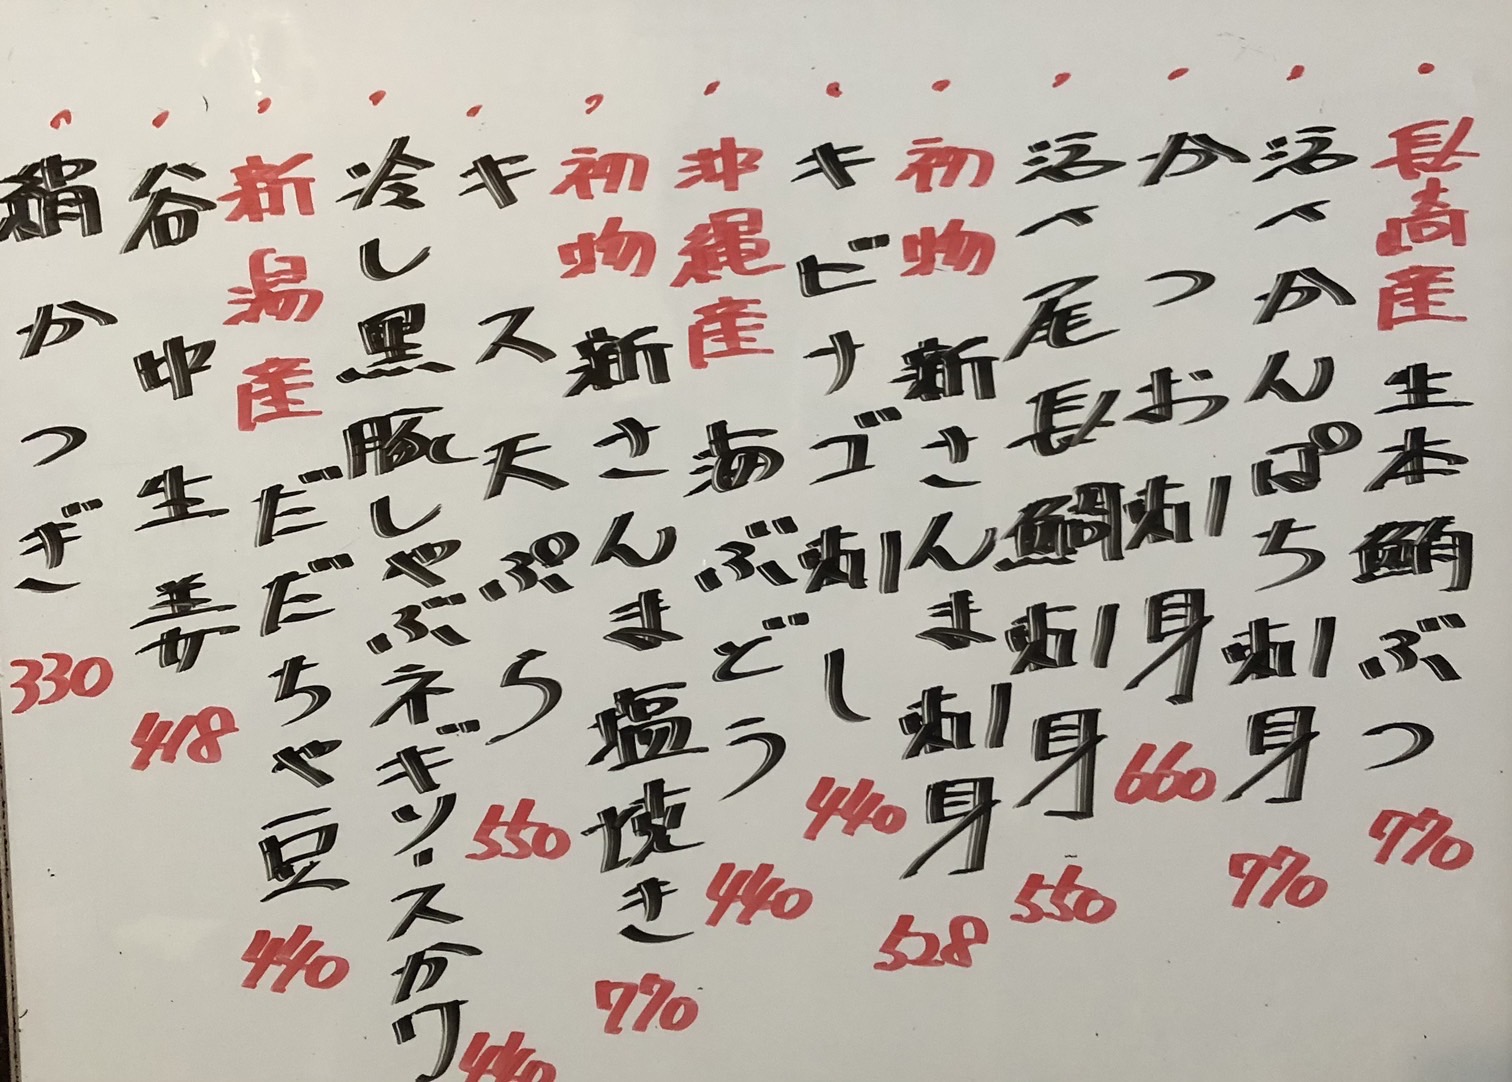 長崎産 生本鮪ぶつ 770
活〆かんぱち刺身 770
かつお刺身 660
活〆尾長鯛刺身 550
初物 新さんま刺身 528
キビナゴ刺し 440
沖縄産 海ぶどう 440
初物 新さんま塩焼き 770
キス天ぷら 550
冷し黒豚しゃぶネギソースかけ 440
新潟産 だだちゃ豆 440
谷中生姜 418
絹かつぎ 330